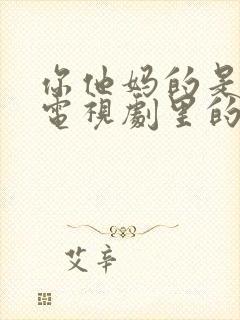 你他妈的是
電視劇里的
艾辛